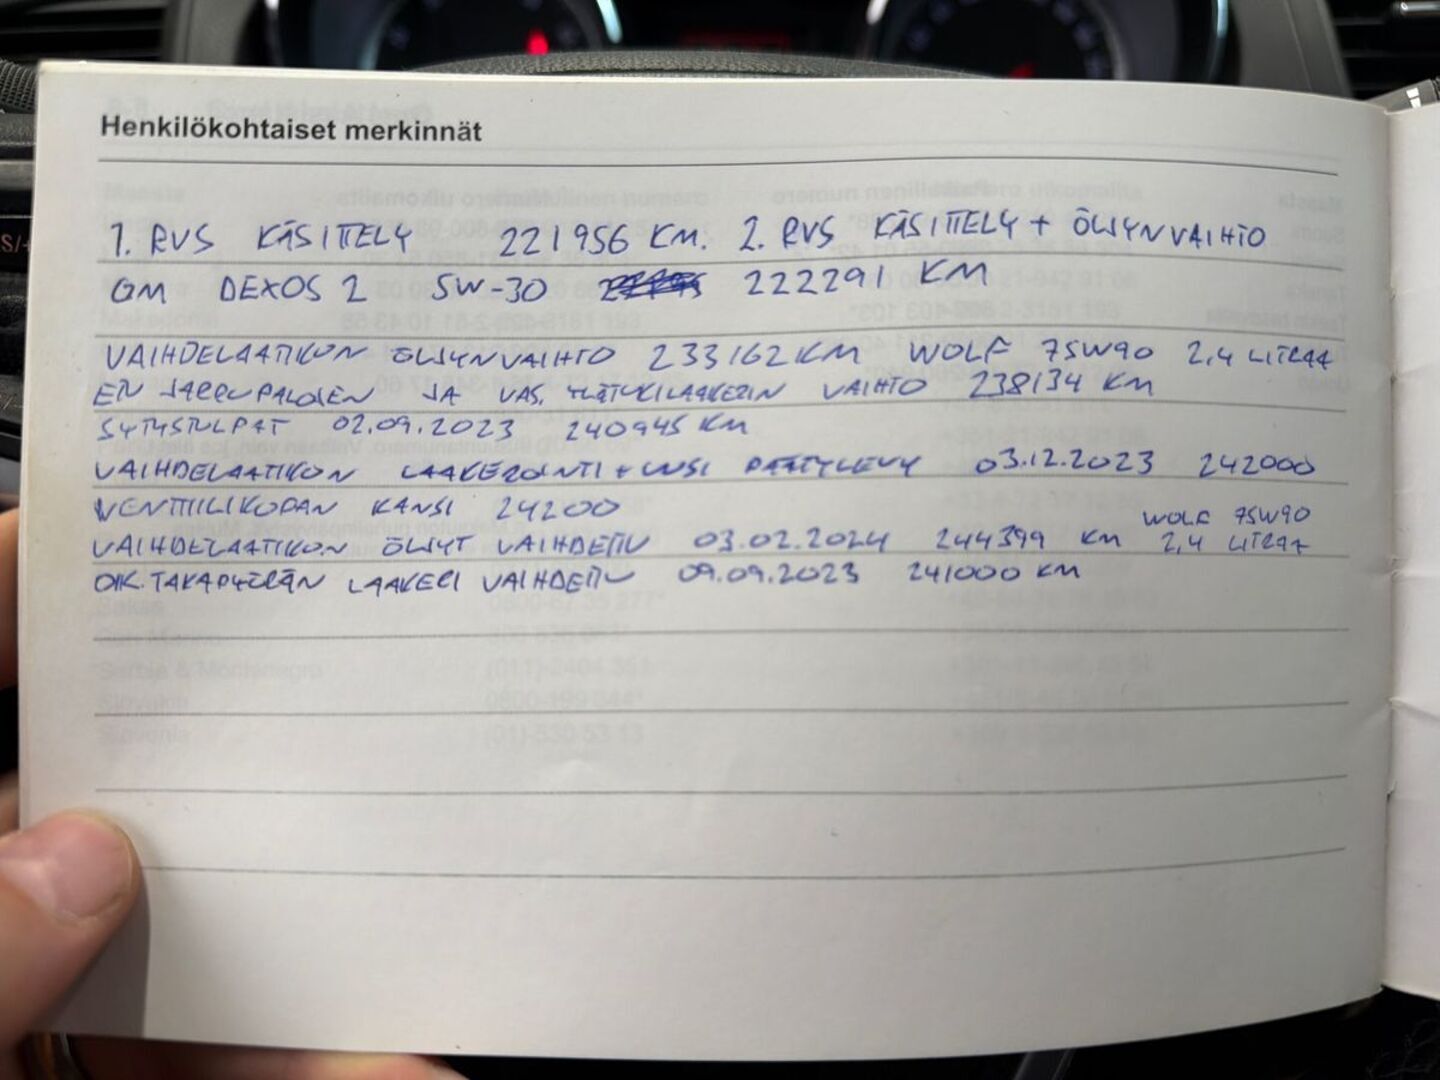 Henkilökohtaiset merkinnät
1. RVS KÄSITTELY 221956 KM. 2. RVS KÄSITTELY + ÖLJYNVAIHTO
GM DEXOS 2 5W-30 222291 KM
VAIHDELAATIKON ÖLJYNVAIHTO 233162 KM WOLF 75W90 2,4 LITRAA
EN JARRUPALOJEN JA VAS. YLÄTUKILAAKERIN VAIHTO 238134 KM
SYTYSTULPAT 02.09.2023 240945 KM
VAIHDELAATIKON LAAKEROINTI + UUSI PÄÄTYLEVY 03.12.2023 242000
VENTTIILIKOPAN KANSI 24200
WOLF 75W90
VAIHDELAATIKON ÖLJYT VAIHDETTU 03.02.2024 244399 KM 2,4 LITRAA
OIK. TAKAPYÖRÄN LAAKERI VAIHDETTU 09.09.2023 241000 KM